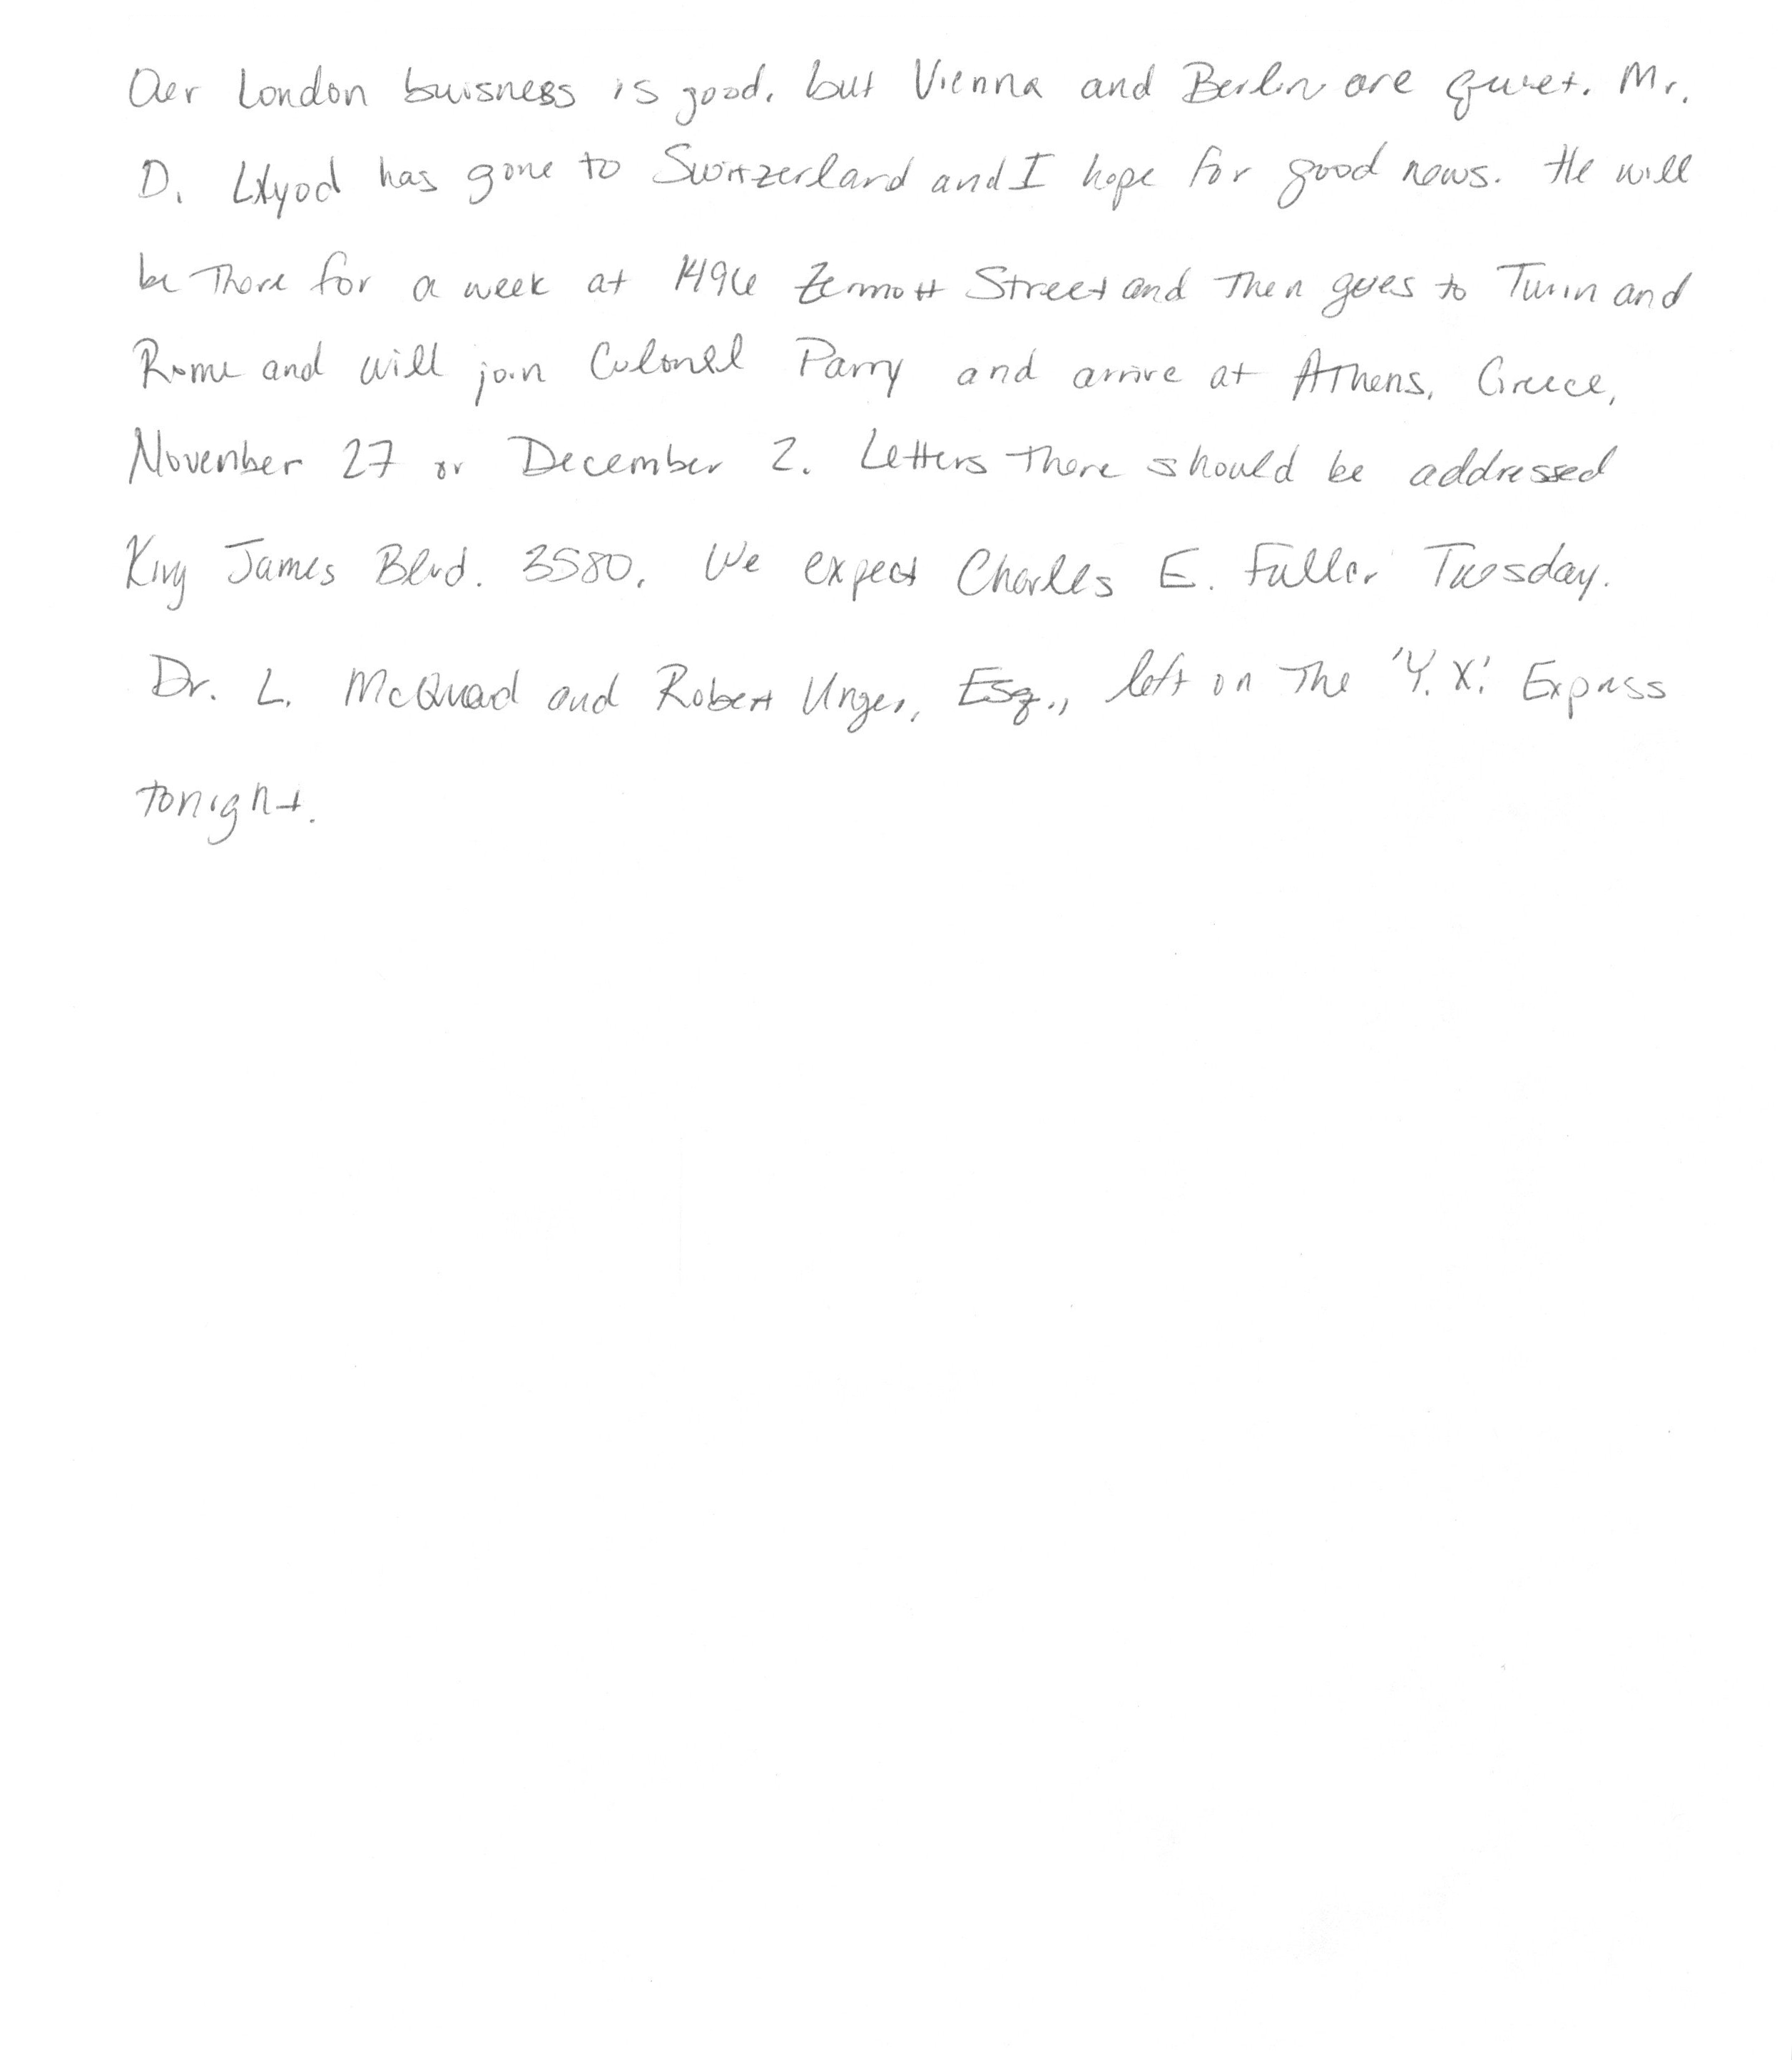 Our London buisness is good, but Vienna and Berlin are quiet. Mr.
D. Llyod has gone to Switzerland and I hope for good news. He will
be There for a week at 1496 Zermott Street and Then goes to Turin and
Rome and will join Colonel Parry and arrive at Athens, Greece,
November 27 or December 2. Letters There should be addressed
King James Blvd. 3580. We expect Charles E. Fuller Tuesday.
Dr. L. McQuaid and Robert Unger, Esq., left on The 'Y.X.' Express
tonight.